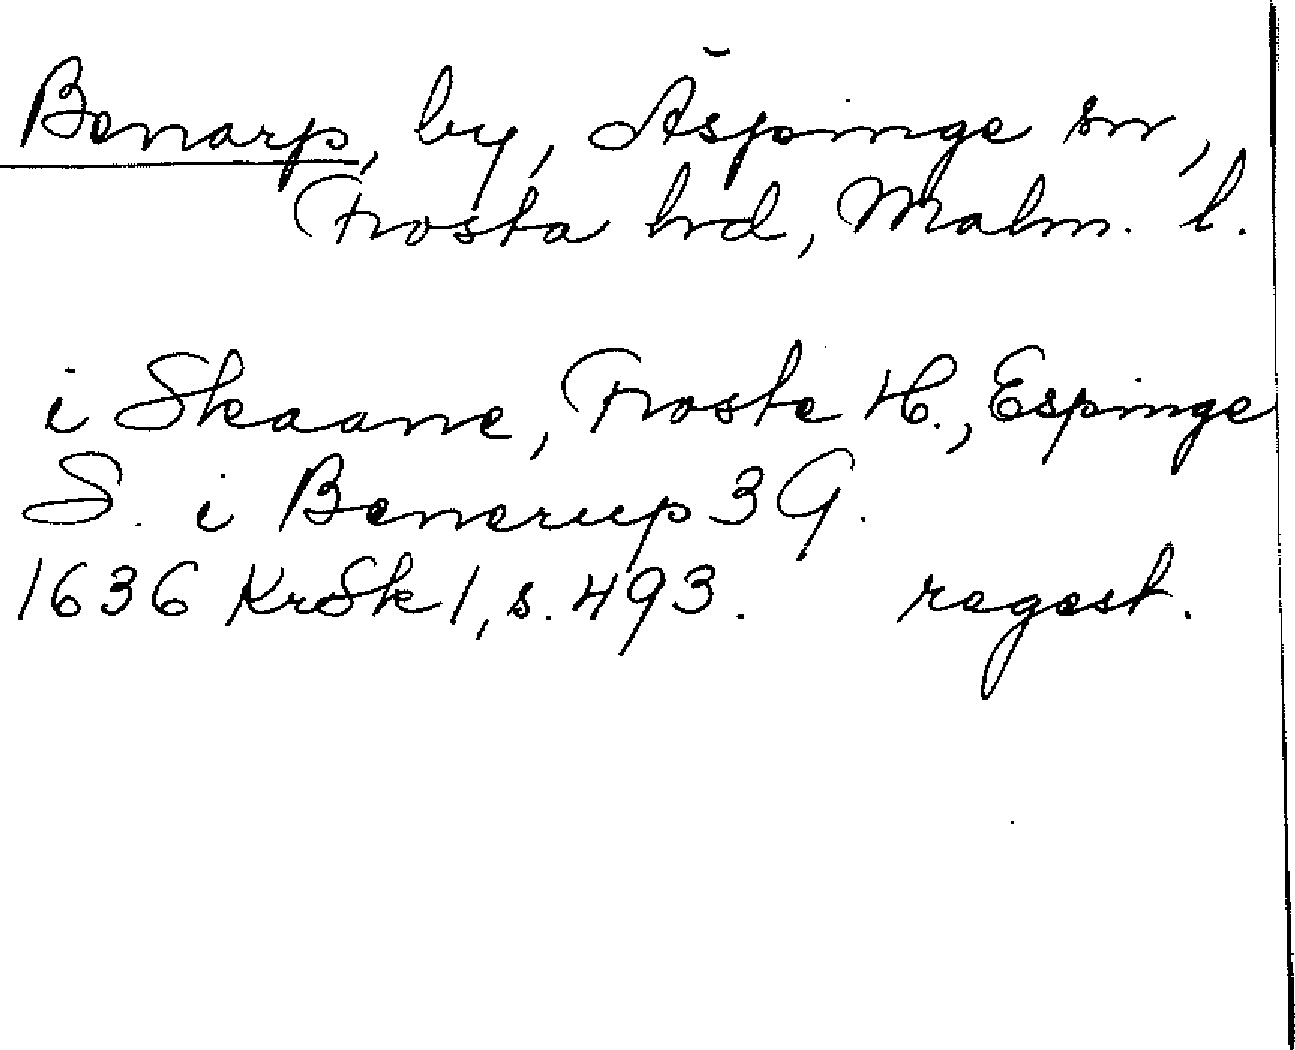 Benarp, by, Äspinge sn,
Frosta hrd, Malm. l.
i Skaane, Froste H., Espinge
S. i Benerup 3 G.
1636 KrSk 1, s. 493. regest.